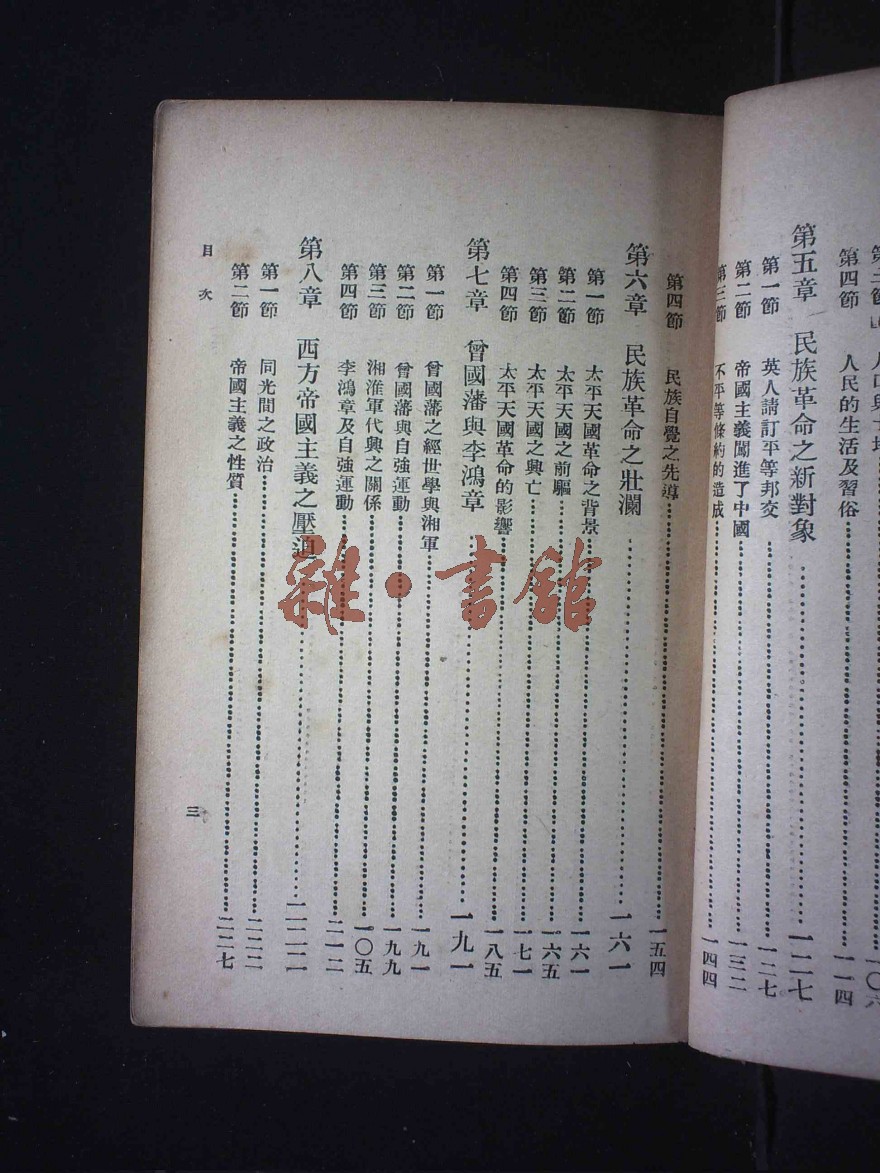 第四節 人民的生活及習俗……一一四
第五章 民族革命之新對象……一二七
第一節 英人請訂平等邦交……一二七
第二節 帝國主義闖進了中國……一三二
第三節 不平等條約的造成……一四四
第四節 民族自覺之先導……一五四
第六章 民族革命之壯瀾……一六一
第一節 太平天國革命之背景……一六一
第二節 太平天國之前驅……一六五
第三節 太平天國之興亡……一七一
第四節 太平天國革命的影響……一八五
第七章 曾國藩與李鴻章……一九一
第一節 曾國藩之經世學與湘軍……一九一
第二節 曾國藩與自強運動……一九九
第三節 湘淮軍代興之關係……一〇五
第四節 李鴻章及自強運動……二一二
第八章 西方帝國主義之壓迫……二二二
第一節 同光間之政治……二二二
第二節 帝國主義之性質……二二七
目次 三
雜·書館